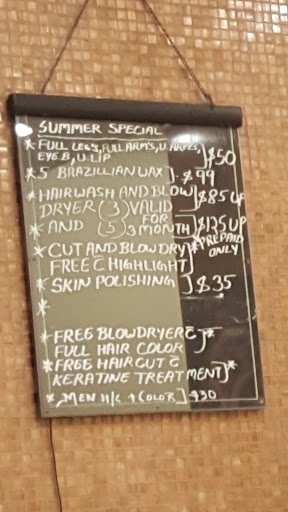 SUMMER SPECIAL
* FULL LEG'S, FULL ARM'S, U. ARMS,
EYE.B, U.LIP ] $50
* 5 BRAZILLIAN WAX ] $99
* HAIRWASH AND BLOW ] $85 UP
DRYER (3) VALID
* AND (5) FOR 3 MONTH ] $125 UP
* PREPAID ONLY
* CUT AND BLOW DRY
FREE C̄ HIGHLIGHT ]
* SKIN POLISHING ] $35
*
*
* FREE BLOWDRYER C̄ ] *
FULL HAIR COLOR
* FREE HAIRCUT C̄ ] *
KERATINE TREATMENT
*, MEN H/C + COLOR ] $30